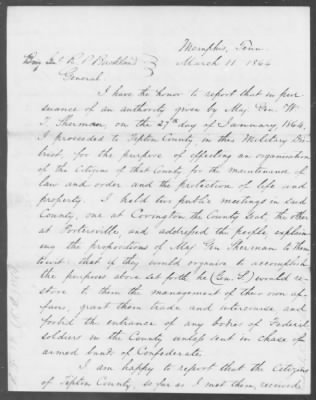 Memphis, Tenn
March 11 1864
Brig Genl R. P. Buckland
General.
I have the honor to report that in pur
suance of an authority given by Maj. Gen. W.
T. Sherman, on the 27th day of January, 1864,
I proceeded to Tipton County, in this Military Dis
trict, for the purpose of effecting an organization
of the Citizens of that County for the maintenance of
law and order and the protection of life and
property. I held two public meetings in said
County, one at Covington the County Seat, the other
at Portersville, and addressed the people, explain
ing the propositions of Maj Gen Sherman to them
to wit: that if they would organize to accomplish
the purposes above set forth, he (Gen. S.) would re
store to them the management of their own af
fairs, grant them trade and intercourse and
forbid the entrance of any bodies of Federal
soldiers in the County unless sent in chase of
armed bands of Confederates.
I am happy to report that the Citizens
of Tipton County, so far as I met them, received